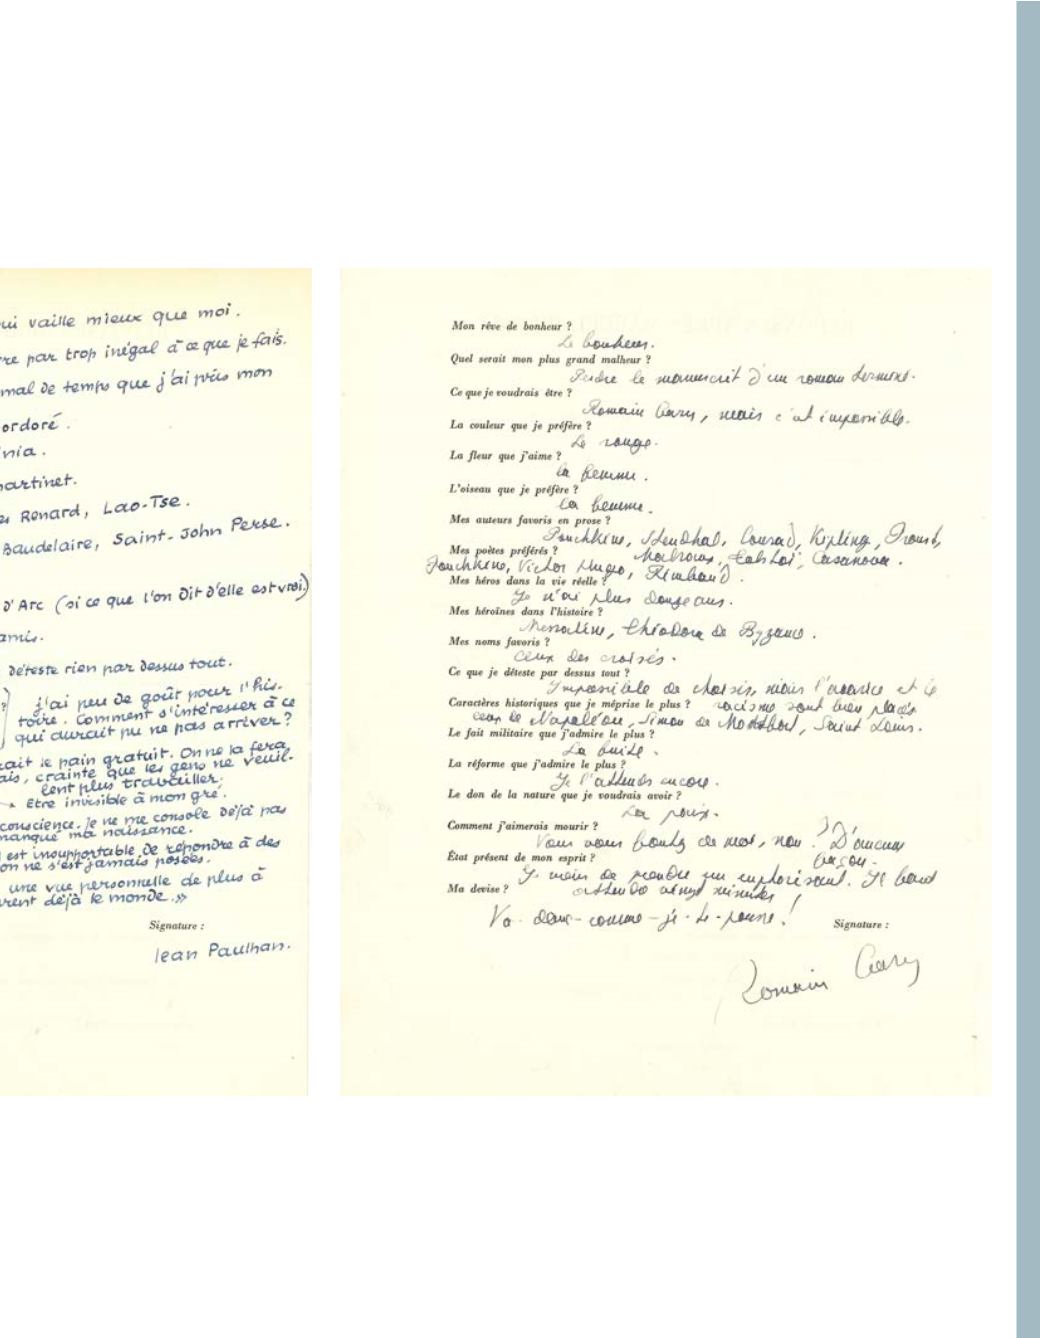 ui vaille mieux que moi.
re par trop inégal à ce que je fais.
mal de temps que j'ai pris mon
ordoré.
nia.
artinet.
Renard, Lao-Tse.
Baudelaire, Saint-John Perse.
d'Arc (si ce que l'on dit d'elle est vrai)
amis.
déteste rien par dessus tout.
? j'ai peu de goût pour l'his-
toire. Comment s'intéresser à ce
qui aurait pu ne pas arriver?
ait le pain gratuit. On ne la fera
ais, crainte que les gens ne veuil-
lent plus travailler.
Etre invisible à mon gré.
conscience. Je ne me console déjà pas
manqué ma naissance.
est insupportable de répondre à des
on ne s'est jamais posées.
une vue personnelle de plus à
rent déjà le monde.»
Signature :
Jean Paulhan.
Mon rêve de bonheur ?
Le bonheur.
Quel serait mon plus grand malheur ?
Perdre le manuscrit d'un roman terminé.
Ce que je voudrais être ?
Romain Gary, mais c'est impossible.
La couleur que je préfère ?
Le rouge.
La fleur que j'aime ?
La femme.
L'oiseau que je préfère ?
La femme.
Mes auteurs favoris en prose ?
Pouchkine, Stendhal, Conrad, Kipling, Proust,
Malraux, Tolstoï, Casanova.
Mes poètes préférés ?
Pouchkine, Victor Hugo, Rimbaud.
Mes héros dans la vie réelle ?
Je n'ai plus douze ans.
Mes héroïnes dans l'histoire ?
Messaline, Théodora de Byzance.
Mes noms favoris ?
Ceux des croisés.
Ce que je déteste par dessus tout ?
Impossible de choisir, mais l'avarice et le
racisme sont bien placés
Caractères historiques que je méprise le plus ?
ceux de Napoléon, Simon de Montfort, Saint Louis.
Le fait militaire que j'admire le plus ?
La fuite.
La réforme que j'admire le plus ?
Je l'attends encore.
Le don de la nature que je voudrais avoir ?
La paix.
Comment j'aimerais mourir ?
Vous vous foutez de moi, non ? D'aucune
façon.
État présent de mon esprit ?
Je viens de prendre un euphorisant. Il faut
attendre vingt minutes !
Ma devise ?
Va-donc-comme-je-te-pousse !
Signature :
Romain Gary